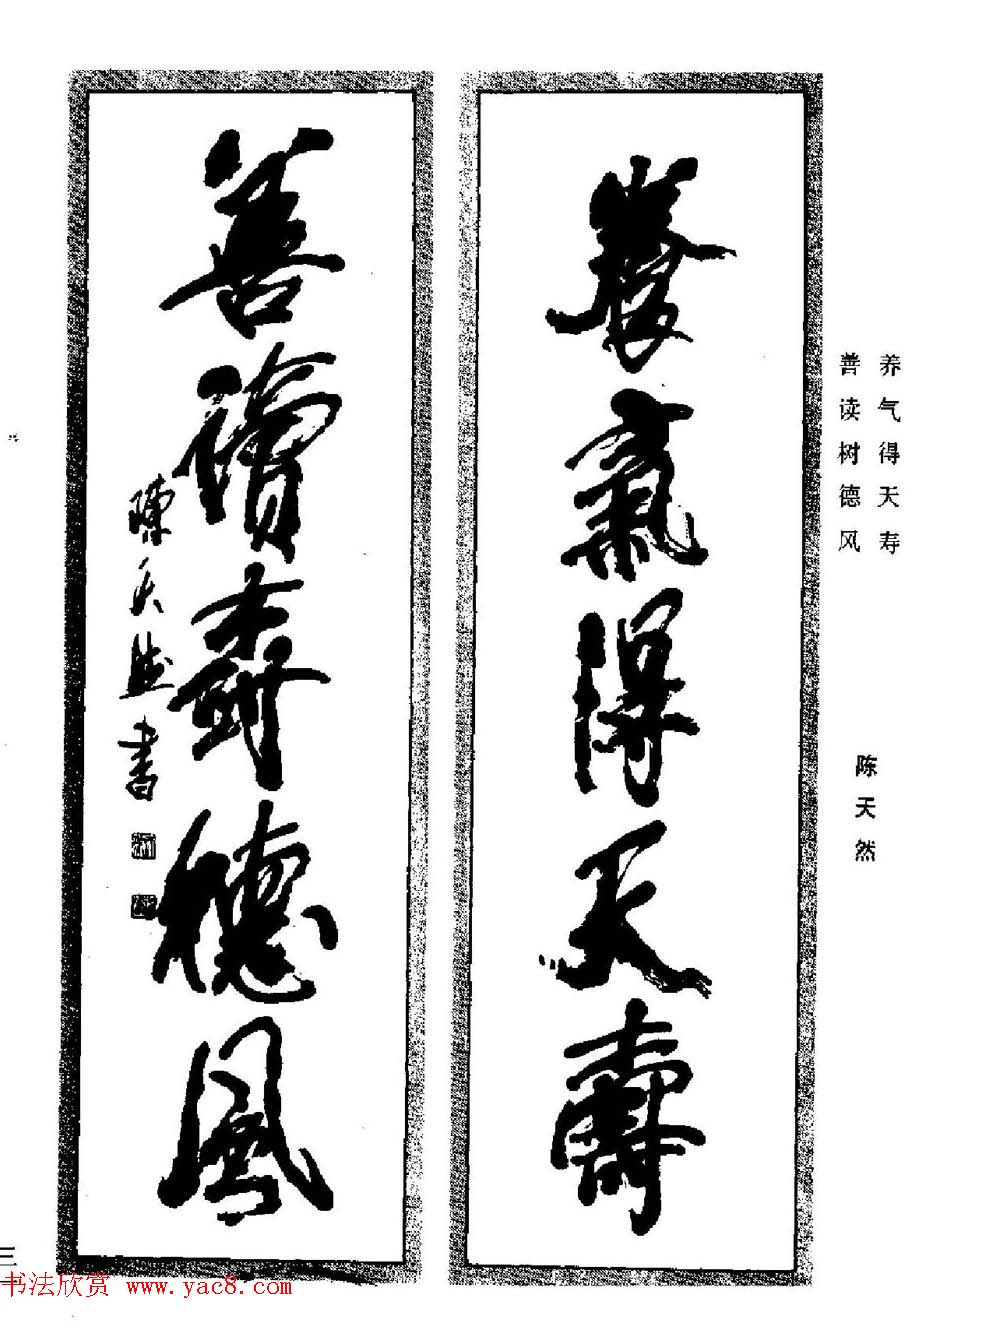 养气得天寿
善读树德风
陈天然
養氣得天壽
善讀尌德風
陳天然書
三
书法欣赏 www.yac8.com